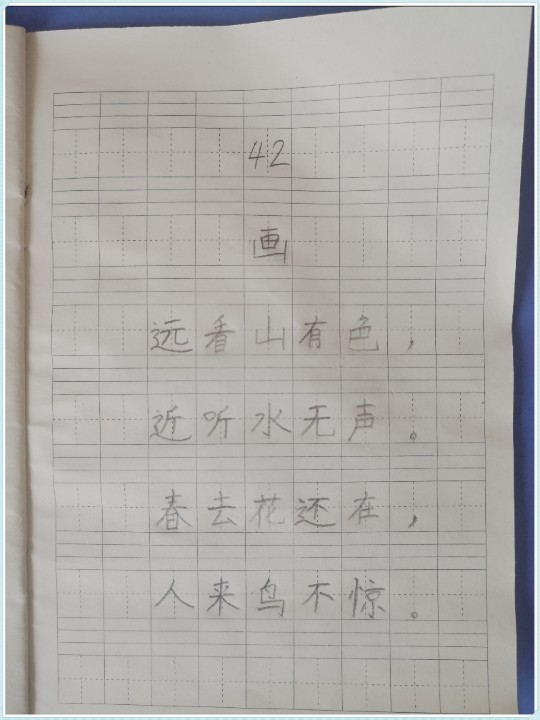 42
画
远看山有色，
近听水无声。
春去花还在，
人来鸟不惊。